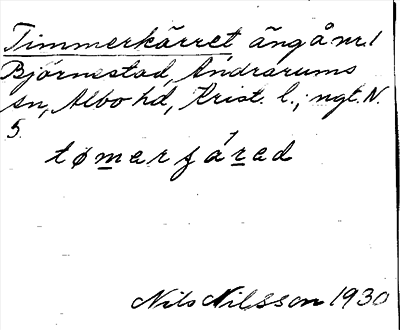 Timmerkärret äng å nr 1
Björnestad, Andrarums
sn, Albo hd, Krist. l.; ngt. N.
5.
tømarjárad
Nils Nilsson 1930